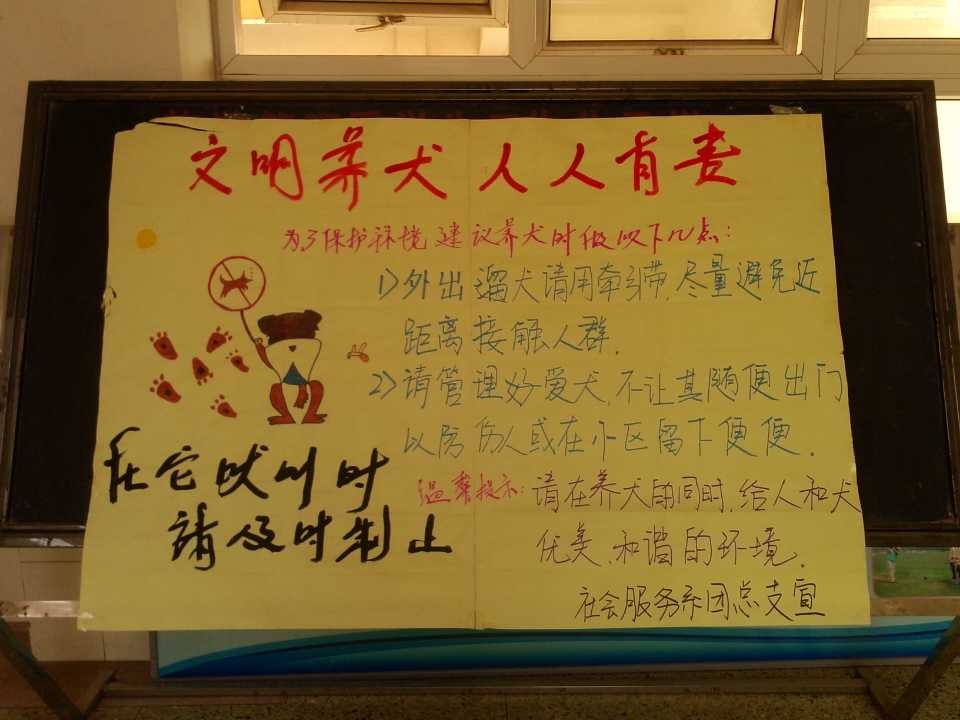 文明养犬 人人有责
为了保护环境 建议养犬时做以下几点:
1)外出遛犬请用牵引带,尽量避免近
距离接触人群.
2)请管理好爱犬,不让其随便出门
以防伤人或在小区留下便便.
在它吠叫时
請及时制止
温馨提示:请在养犬的同时,给人和犬
优美、和谐的环境.
社会服务系团总支宣